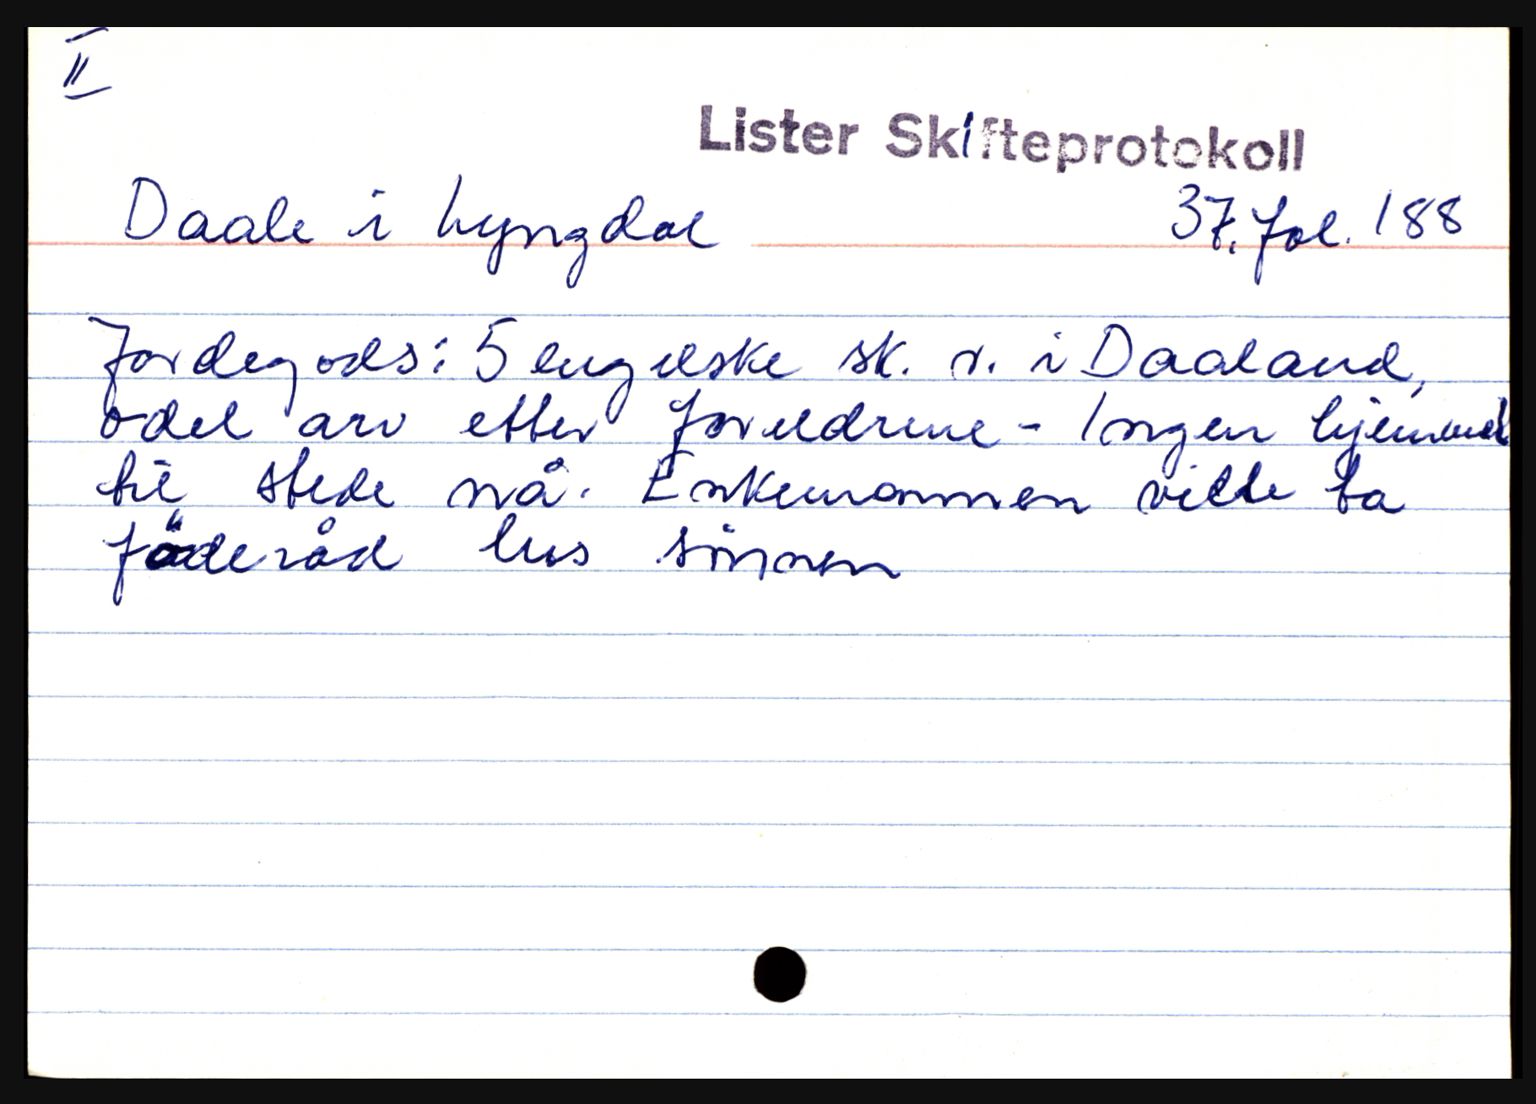 II
Lister Skifteprotokoll
Daale i Lyngdal 37. fol. 188
Jordegods: 5 engelske sk. r. i Daaland,
odel arv etter foreldrene - Ingen hjemmel
til stede nå. Enkemannen ville ta
föderåd hos sönnen